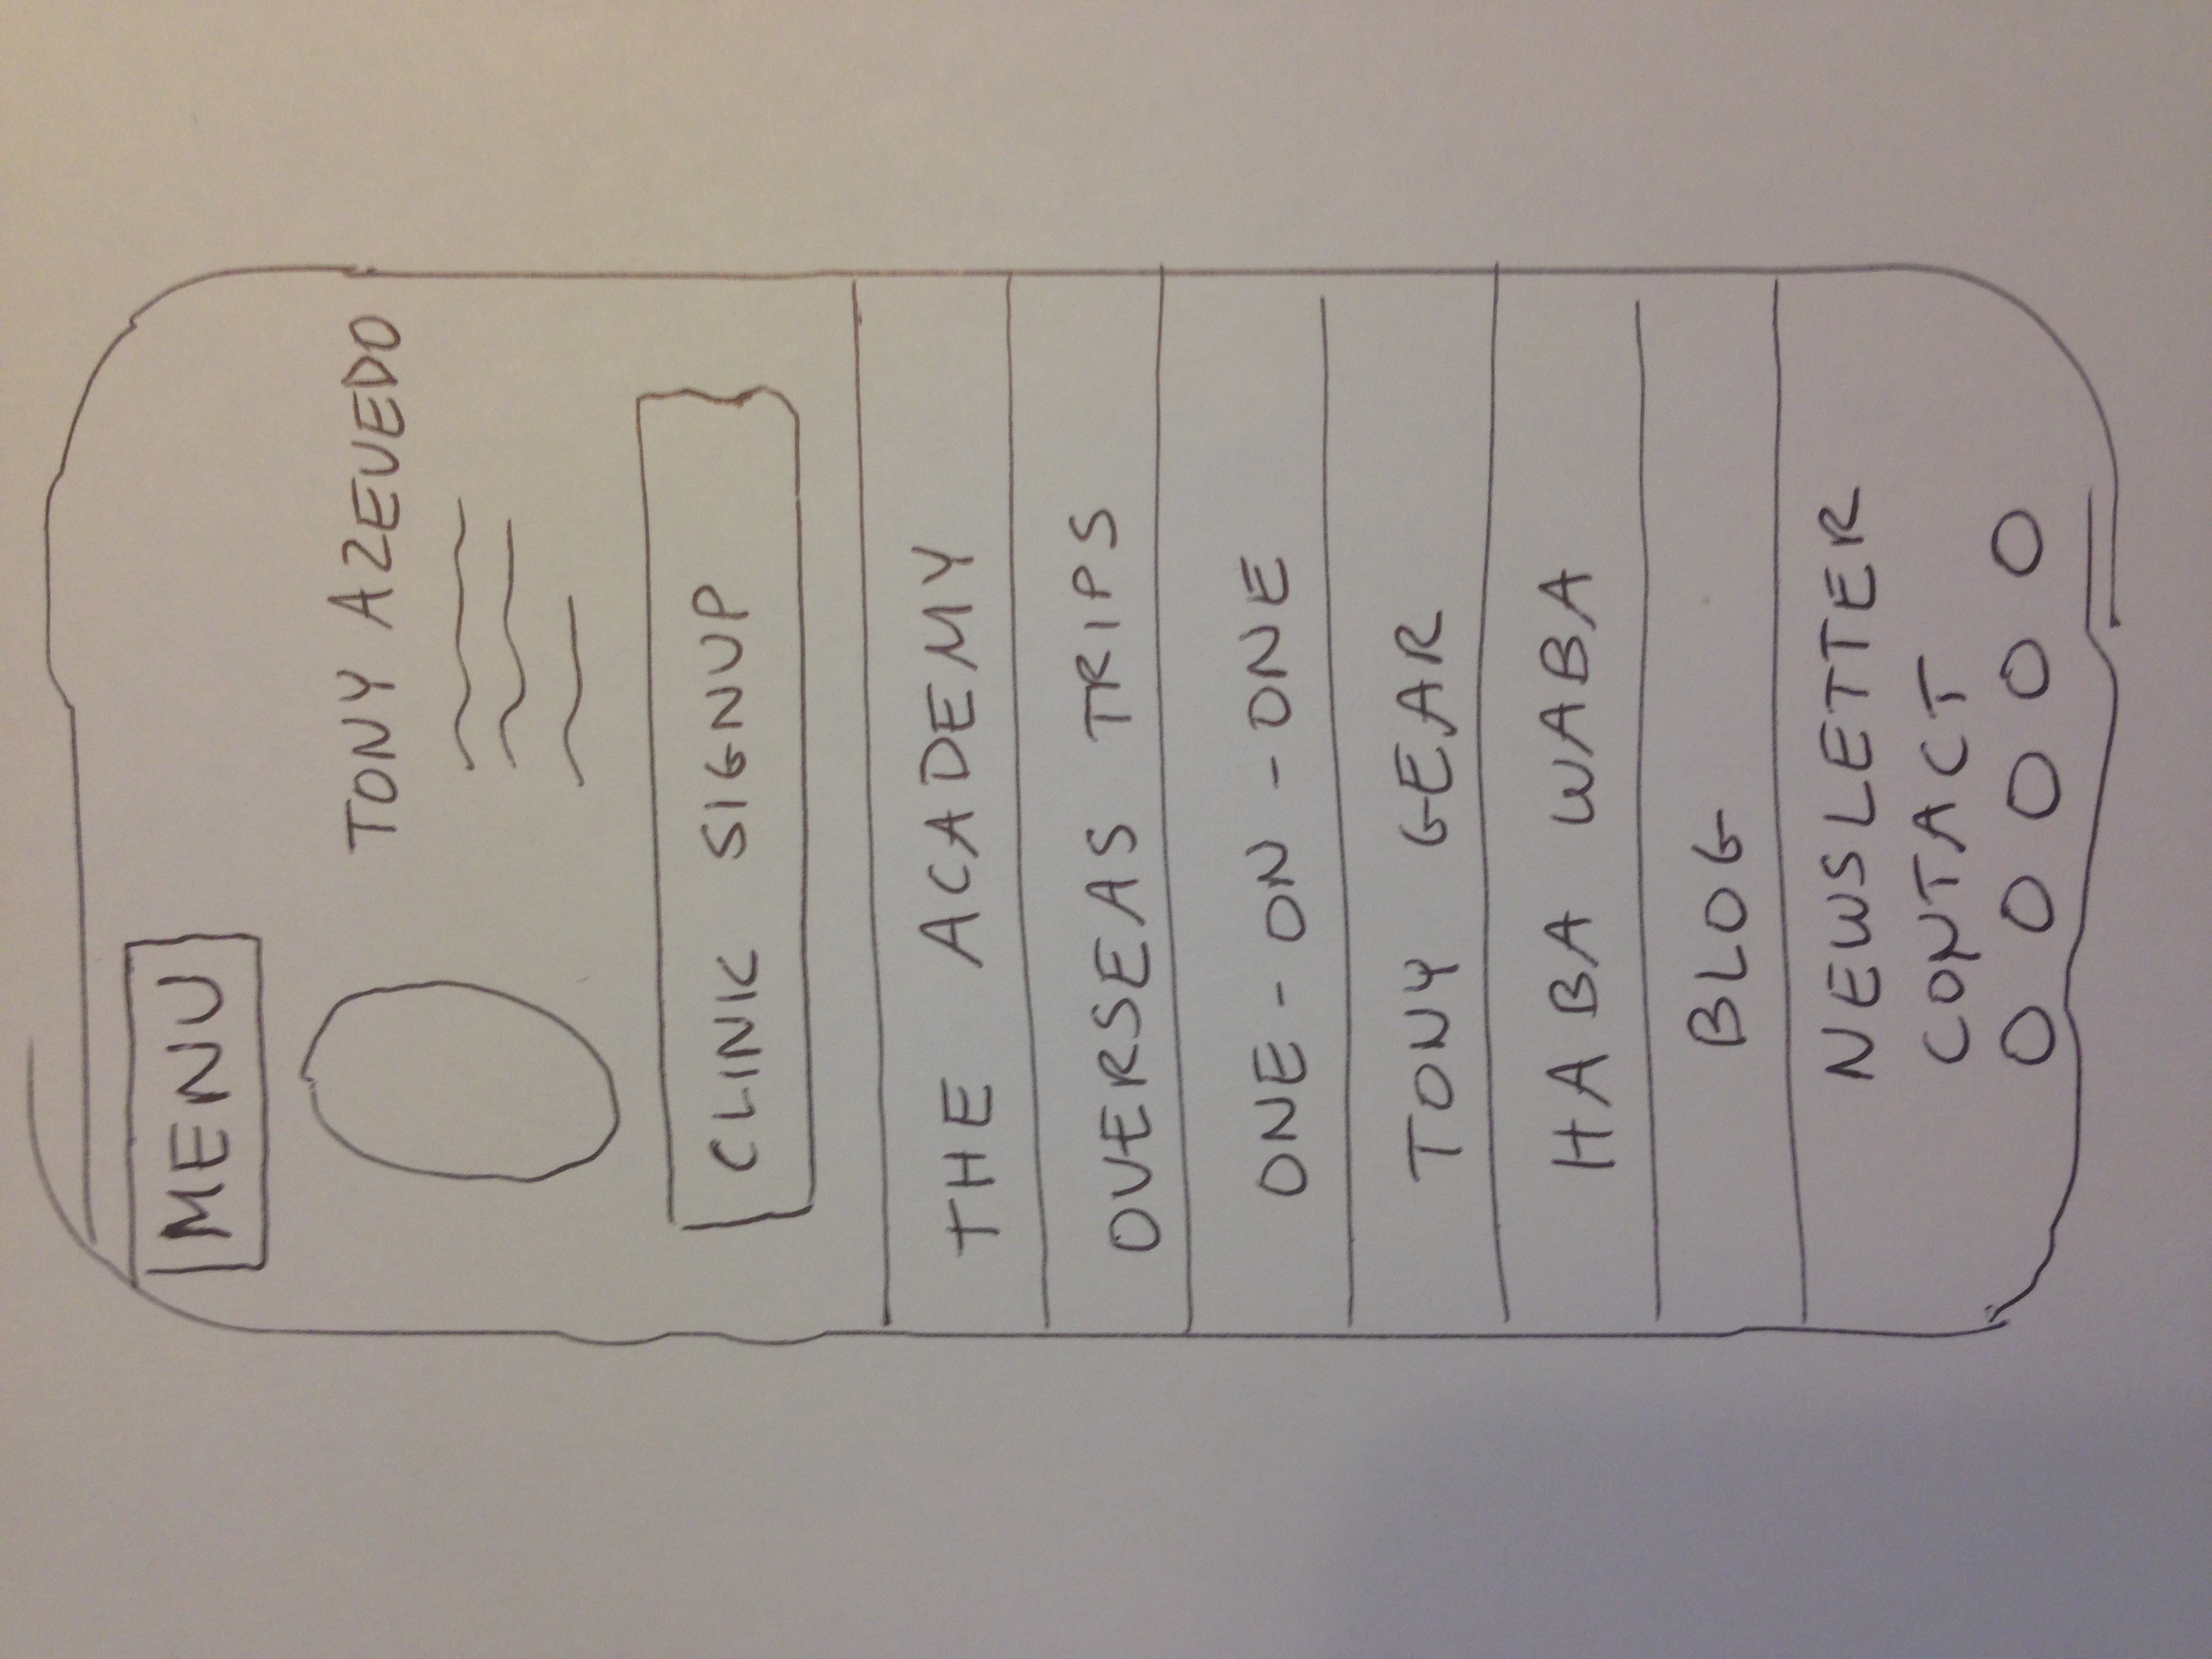 MENU
TONY AZEVEDO
CLINIC SIGNUP
THE ACADEMY
OVERSEAS TRIPS
ONE-ON-ONE
TONY GEAR
HABA WABA
BLOG
NEWSLETTER
CONTACT